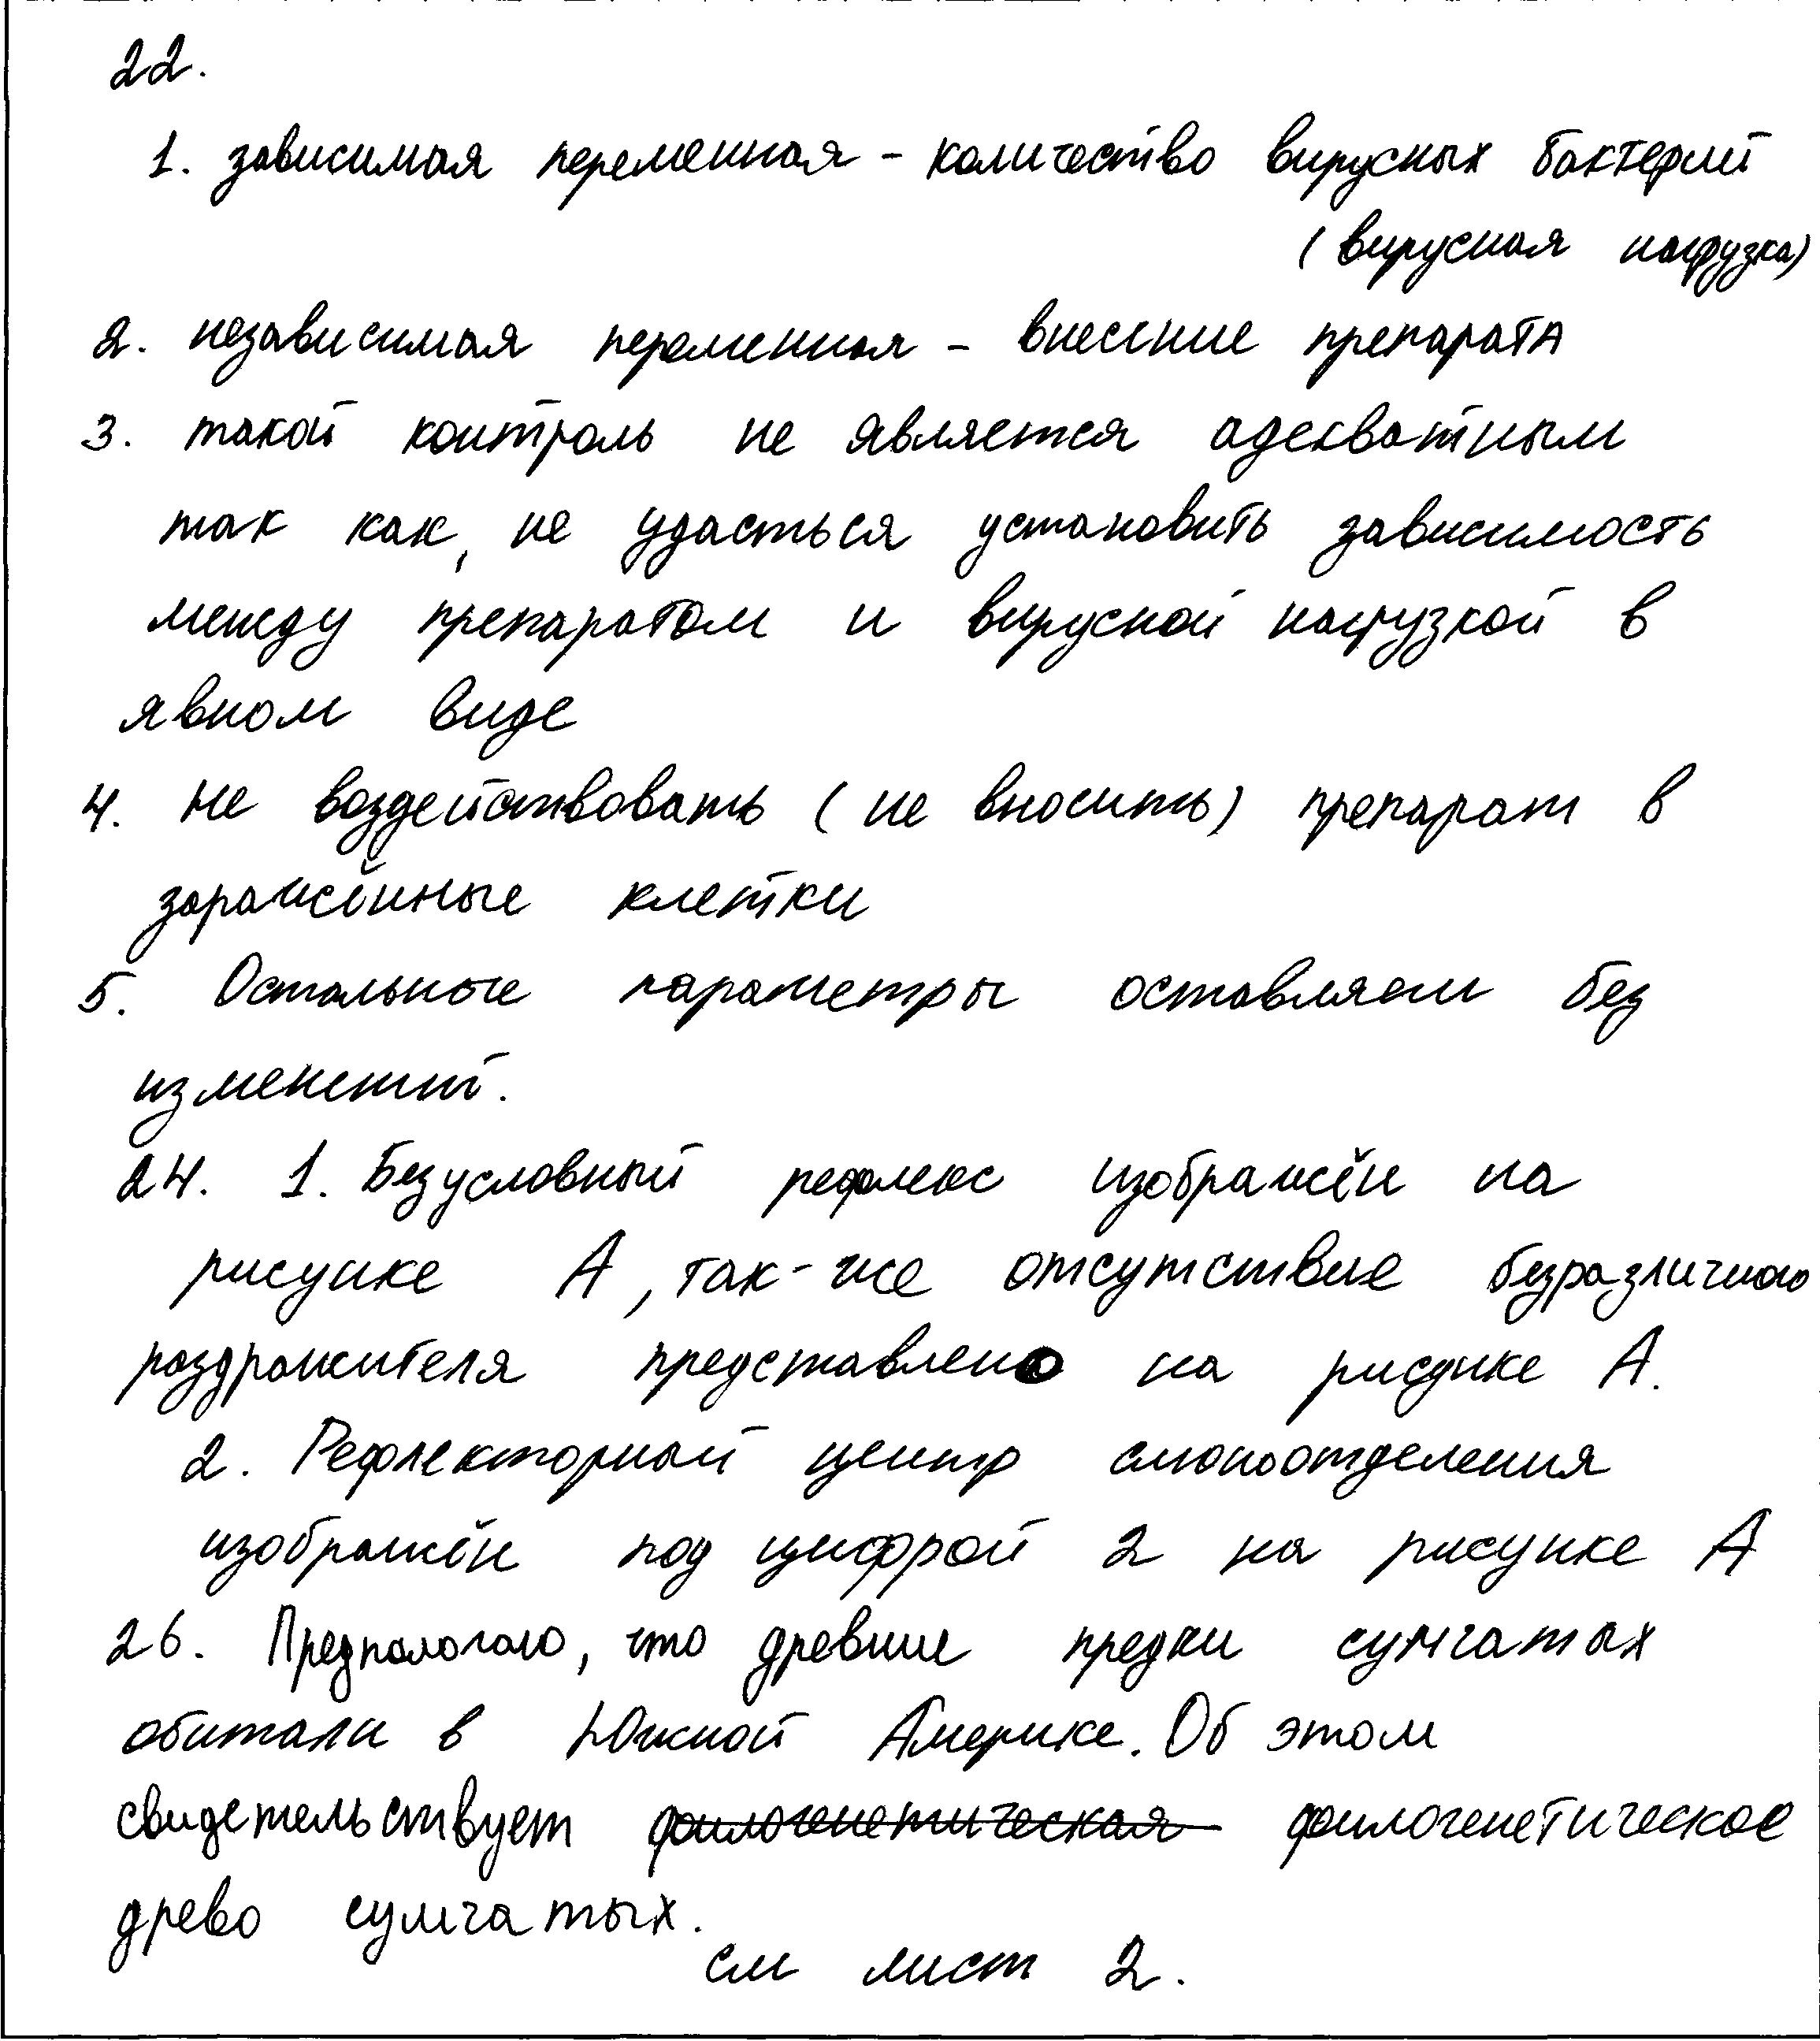 22.
1. зависимая переменная - количество вирусных бактерий
(вирусная нагрузка)
2. независимая переменная - внесение препарата
3. такой контроль не является адекватным
так как, не удасться установить зависимость
между препаратом и вирусной нагрузкой в
явном виде
4. не воздействовать (не вносить) препарат в
заражённые клетки
5. Остальные параметры оставляем без
изменений.
24. 1. Безусловный рефлекс изображён на
рисунке А, так-же отсутствие безразличного
раздражителя представлено на рисунке А.
2. Рефлекторный центр слюноотделения
изображён под цифрой 2 на рисунке А
26. Предпологаю, что древние предки сумчатых
обитали в Южной Америке. Об этом
свидетельствует филогенетическая филогенетическое
древо сумчатых.
см лист 2.